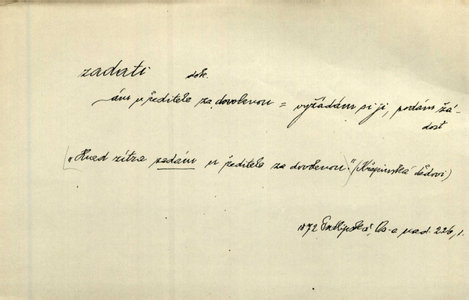 zadati dok.
-ám u ředitele za dovolenou = vyžádám si ji, podám žá-
dost
„Hned zítra zadám u ředitele za dovolenou." (Křepinská dědovi)
1872 a nad. 226, 1.